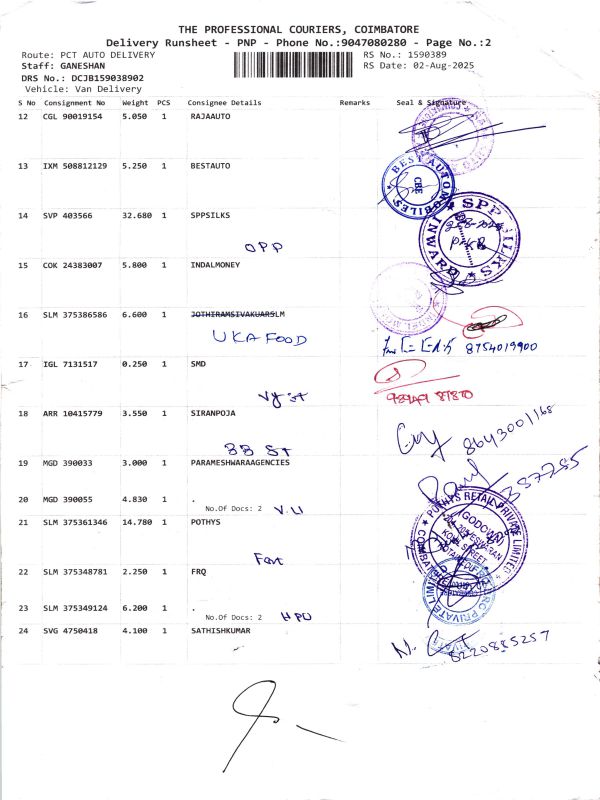 THE PROFESSIONAL COURIERS, COIMBATORE
Delivery Runsheet - PNP - Phone No.:9047080280 - Page No.:2
Route: PCT AUTO DELIVERY
RS No.: 1590389
Staff: GANESHAN
RS Date: 02-Aug-2025
DRS No.: DCJB159038902
Vehicle: Van Delivery
S No Consignment No Weight PCS Consignee Details Remarks Seal & Signature
12 CGL 90019154 5.050 1 RAJAAUTO
13 IXM 508812129 5.250 1 BESTAUTO
BEST AUTOMOBILES
CBE
14 SVP 403566 32.680 1 SPPSILKS
SPP SILKS
INWARD
OPP
15 COK 24383007 5.800 1 INDALMONEY
16 SLM 375386586 6.600 1 JOTHIRAMSIVAKUARSLM
UKA FOOD
8754019900
17 IGL 7131517 0.250 1 SMD
18 ARR 10415779 3.550 1 SIRANPOJA
8643001168
BB ST
19 MGD 390033 3.000 1 PARAMESHWARAAGENCIES
357255
20 MGD 390055 4.830 1 .
No.Of Docs: 2
21 SLM 375361346 14.780 1 POTHYS
POTHYS RETAIL PRIVATE LIMITED
(GODOWN)
22 SLM 375348781 2.250 1 FRQ
23 SLM 375349124 6.200 1 .
No.Of Docs: 2
24 SVG 4750418 4.100 1 SATHISHKUMAR
8220885257